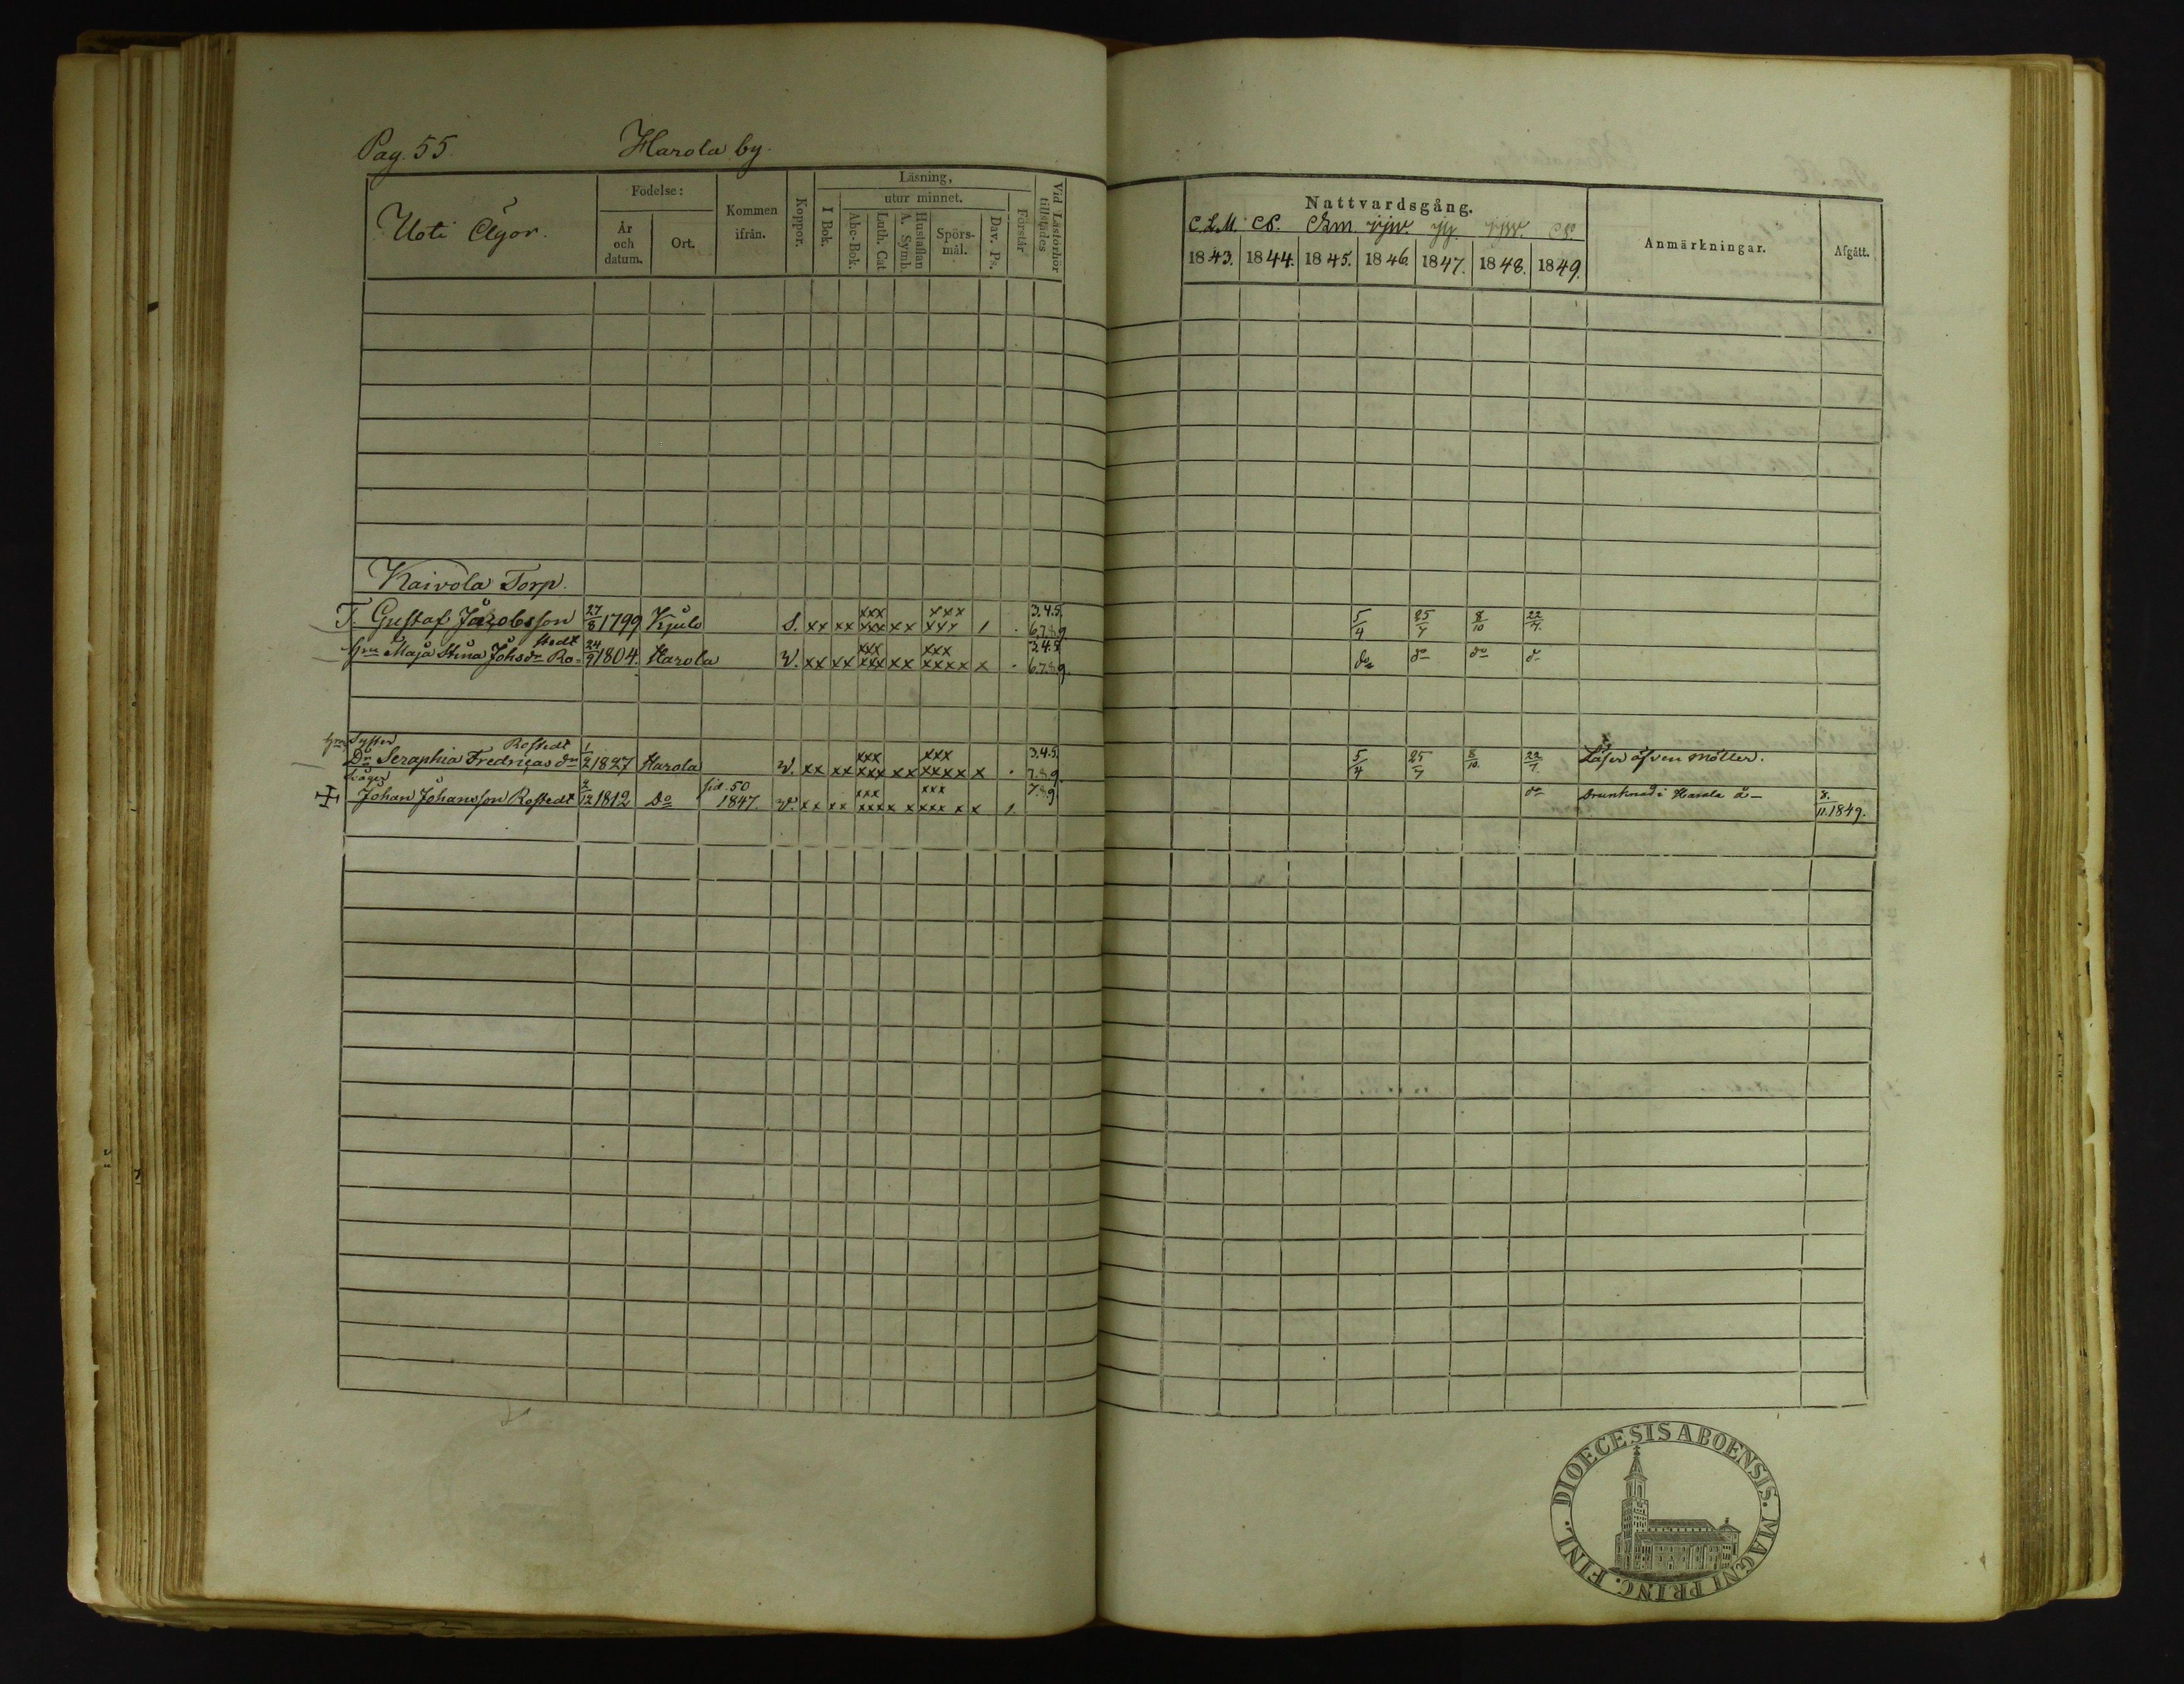 Pag. 55. Harola by.
Uoti Ägor.
Födelse:
År och datum.
Ort.
Kommen ifrån.
Koppor.
Läsning,
I Bok.
utur minnet.
Abc-Bok.
Luth. Cat
Hustaflan A. Symb.
Spörs-mål.
Dav. Ps.
Förstår
Vid Läsförhör tillstädes
Nattvardsgång.
1843. 1844. 1845. 1846. 1847. 1848. 1849.
Anmärkningar.
Afgått.
Kaivola Torp.
T. Gustaf Jacobsson 27/8 1799 Kjulo S. xx xx xxx xxx xx xxx xxx 1 . 3.4.5. 6.7.8.9. 5/4 25/7 8/10 22/7.
Hru Maja Stina Johsdr Ro=stedt 24/9 1804. Harola V. xx xx xxx xxx xx xxx xxxx x . 3.4.5. 6.7.8.9. do do do do
Hrus Syster
Dr Seraphia Fredricas dr Rostedt 1/2 1827 Harola V. xx xx xxx xxx xx xxx xxxx x . 3.4.5. 7.8.9. 5/4 25/7 8/10. 22/7. Läser äfven Möller.
Svåger
Johan Johansson Rostedt 2/12 1812 Do sid. 50 1847. V. xx xx xxx xxx x xxx xxx x x 1. 7.8.9. do Drunknad i Harola å— 8./11. 1849.
DIOECESIS ABOENSIS. MAGNI PRINC. FINL.